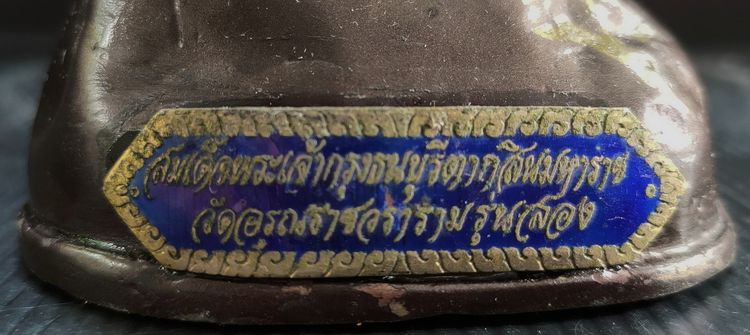 สมเด็จพระเจ้ากรุงธนบุรีตากสินมหาราช
วัดอรุณราชวราราม รุ่นสอง